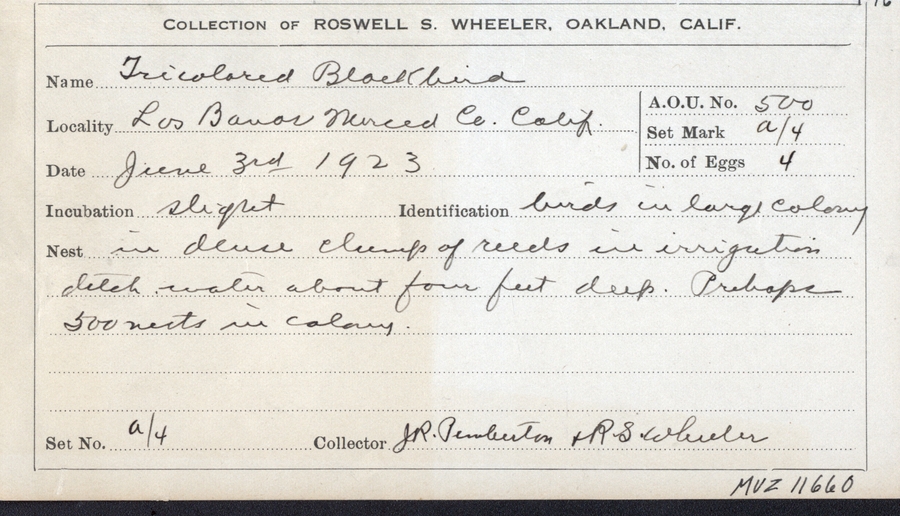 COLLECTION OF ROSWELL S. WHEELER, OAKLAND, CALIF.
Name Tricolored Blackbird
Locality Los Banos Merced Co. Calif.
A.O.U. No. 500
Set Mark a/4
No. of Eggs 4
Date June 3rd 1923
Incubation slight Identification birds in large colony
Nest in dense clump of reeds in irrigation
ditch water about four feet deep. Prehaps
500 nests in colony.
Set No. a/4 Collector J.R. Pemberton & R.S. Wheeler
MVZ 11660